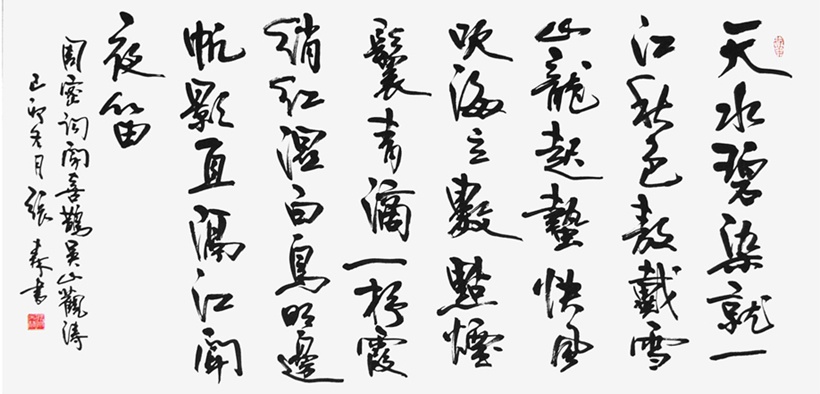 天水碧染就一
江秋色敖戴雪
山龍起蟄快風
吹海立數點煙
鬟青滴一杼霞
綃紅濕白鳥明邊
帆影直隔江聞
夜笛
周密詞聞喜鵲吳山觀濤
己卯冬月張森書